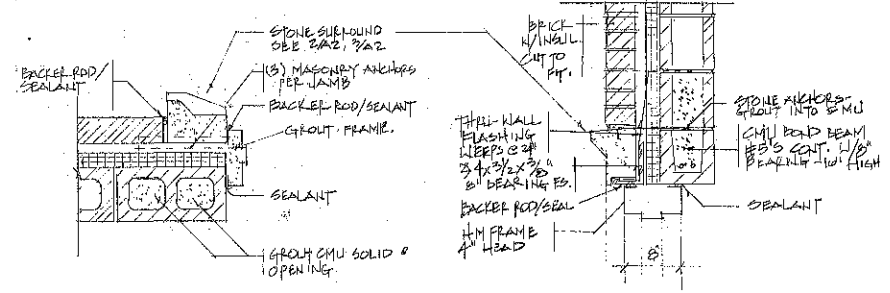 STONE SURROUND
SEE 2/A2, 3/A2
BACKER ROD/
SEALANT
(3) MASONRY ANCHORS
PER JAMB
BACKER ROD/SEALANT
GROUT FRAME.
SEALANT
GROUT CMU SOLID @
OPENING
BRICK
W/INSUL.
CUT TO
FIT.
THRU-WALL
FLASHING
WEEPS @ 24"
4x3 1/2x3/8
8" BEARING ES.
BACKER ROD/SEAL
HM FRAME
4" HEAD
STONE ANCHORS-
GROUT INTO CMU
CMU BOND BEAM
#5'S CONT. W/8"
BEARING - HIGH
SEALANT
8"